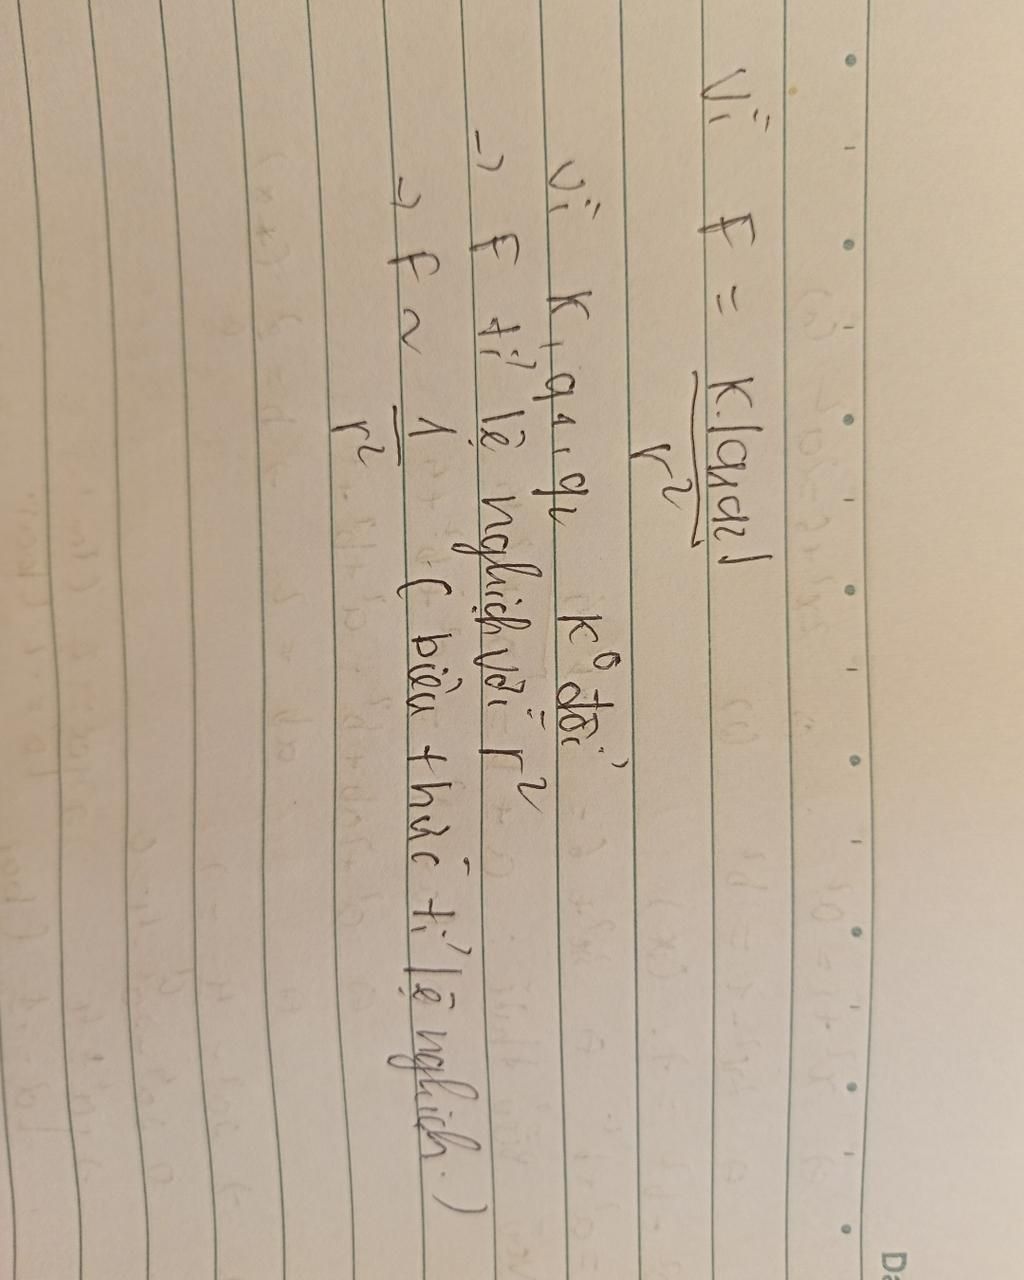 Vì F = K.|q1q2|
r²
Vì K, q1, q2 k° đổi
→ F tỉ lệ nghịch với r²
→ F ~ 1 (biểu thức tỉ lệ nghịch.)
r²
Da